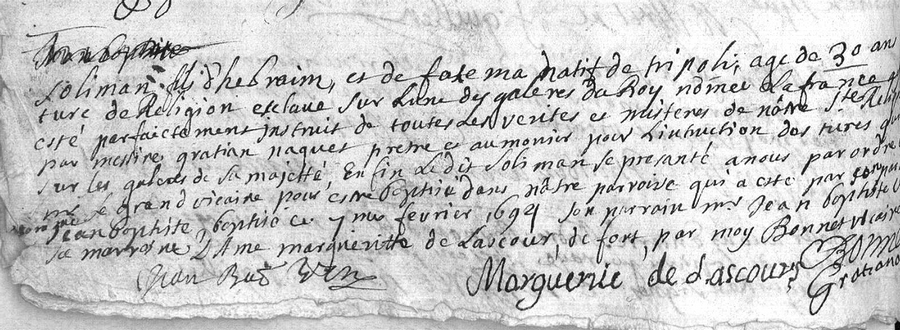 Jean baptiste
Soliman fils d'hebraim, et de fatema natif de tripoli, age de 30 ans
turc de Religion esclave sur l'une des galeres du Roy nômée La france
esté perfaictement instruit de toutes Les verites et misteres de nôtre Ste Religi
par messire gratian naquet pretre et aumonier pour L'instruction des turcs qui
sur les galeres de sa majetté, Enfin Ledit Soliman se presanté a nous par ordre
mr le grand vicaire pour estre baptisé dans nôtre parroisse qui a esté par
Jean baptiste baptisé ce 7me fevrier 1694 son parrain mr Jean baptiste
sa marraine Dame margueritte de Lascour, de fort, par moy Bonnet vicaire
Jean Bat Marguerite de Lascours Bonne
Gratian